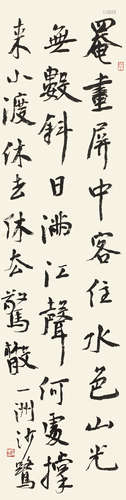 罨畫屏中客住水色山光
無數斜日滿江聲何處撐
來小渡休去休去驚散一洲沙鷺